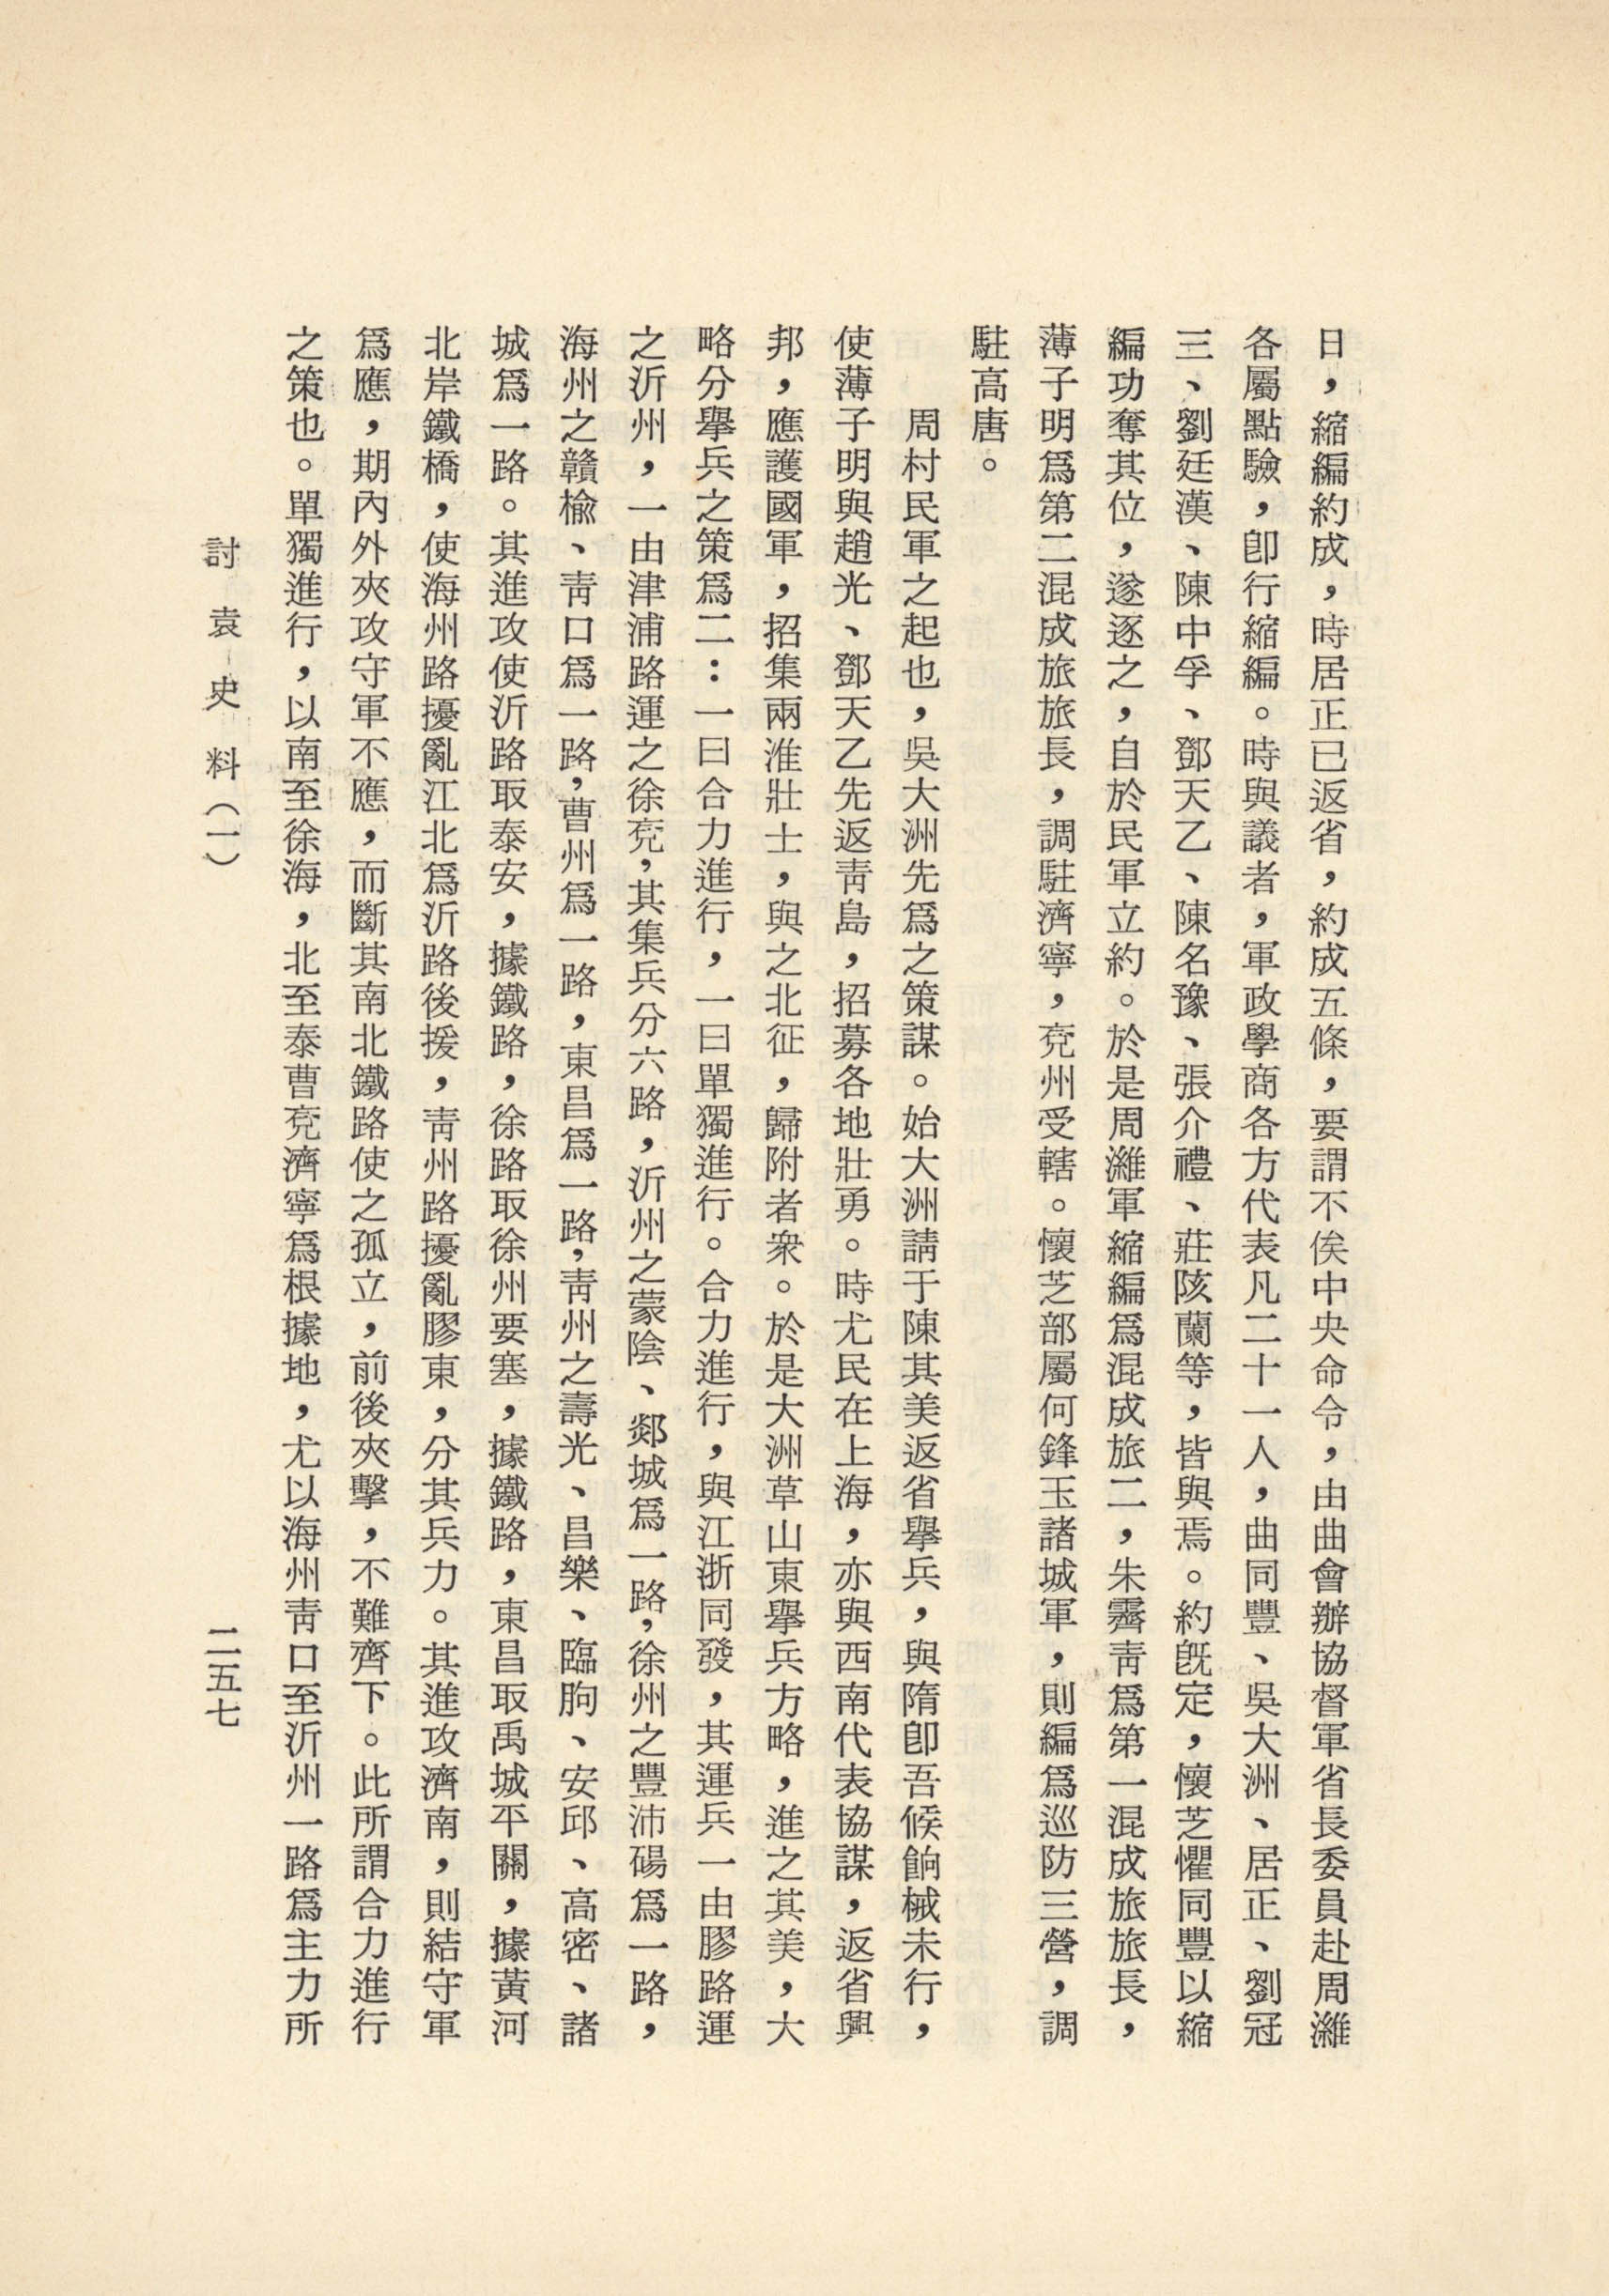 日，縮編約成，時居正已返省，約成五條，要謂不俟中央命令，由曲會辦協督軍省長委員赴周濰
各屬點驗，卽行縮編。時與議者，軍政學商各方代表凡二十一人，曲同豐、吳大洲、居正、劉冠
三、劉廷漢、陳中孚、鄧天乙、陳名豫、張介禮、莊陔蘭等，皆與焉。約旣定，懷芝懼同豐以縮
編功奪其位，遂逐之，自於民軍立約。於是周濰軍縮編爲混成旅二，朱霽靑爲第一混成旅旅長，
薄子明爲第二混成旅旅長，調駐濟寧，兗州受轄。懷芝部屬何鋒玉諸城軍，則編爲巡防三營，調
駐高唐。
周村民軍之起也，吳大洲先爲之策謀。始大洲請于陳其美返省舉兵，與隋卽吾候餉械未行，
使薄子明與趙光、鄧天乙先返靑島，招募各地壯勇。時尤民在上海，亦與西南代表協謀，返省興
邦，應護國軍，招集兩淮壯士，與之北征，歸附者衆。於是大洲草山東舉兵方略，進之其美，大
略分舉兵之策爲二：一曰合力進行，一曰單獨進行。合力進行，與江浙同發，其運兵一由膠路運
之沂州，一由津浦路運之徐兗，其集兵分六路，沂州之蒙陰、郯城爲一路，徐州之豐沛碭爲一路，
海州之贛楡、靑口爲一路，曹州爲一路，東昌爲一路，靑州之壽光、昌樂、臨朐、安邱、高密、諸
城爲一路。其進攻使沂路取泰安，據鐵路，徐路取徐州要塞，據鐵路，東昌取禹城平關，據黃河
北岸鐵橋，使海州路擾亂江北爲沂路後援，靑州路擾亂膠東，分其兵力。其進攻濟南，則結守軍
爲應，期內外夾攻守軍不應，而斷其南北鐵路使之孤立，前後夾擊，不難齊下。此所謂合力進行
之策也。單獨進行，以南至徐海，北至泰曹兗濟寧爲根據地，尤以海州靑口至沂州一路爲主力所
討袁史料（一）
二五七